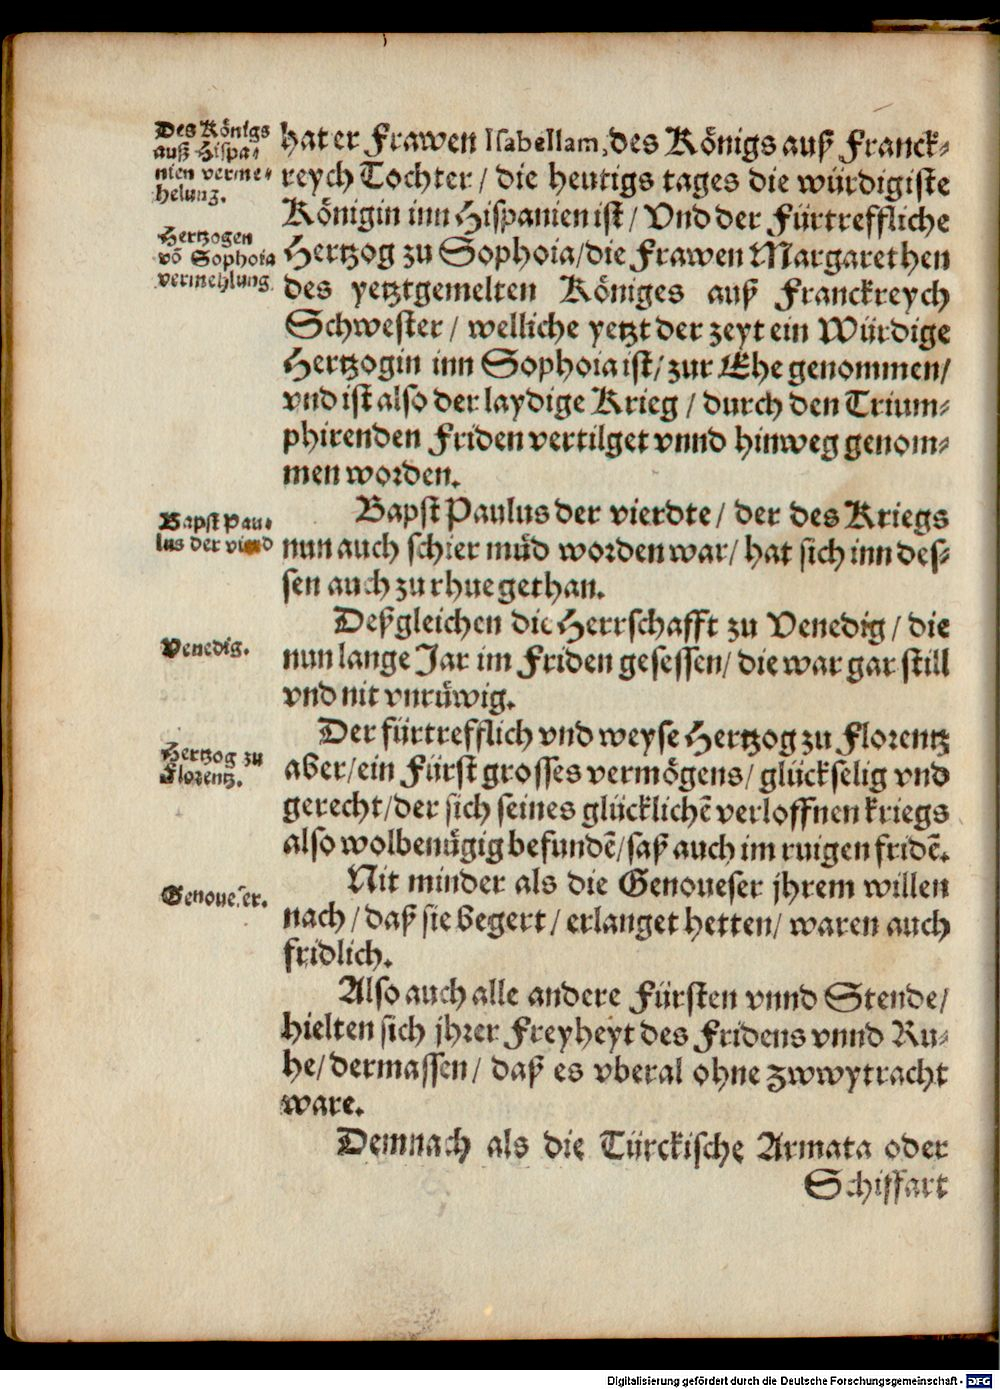 Des Königs
auß Hispa-
nien verme-
helung.
Hertzogen
võ Sophoia
vermehlung
Bapst Pau-
lus der vierd
Venedig.
Hertzog zu
Florentz.
Genoueser.
hat er Frawen Isabellam, des Königs auß Franck-
reych Tochter / die heutigs tages die würdigiste
Königin inn Hispanien ist / Vnd der Fürtreffliche
Hertzog zu Sophoia / die Frawen Margarethen
des yetztgemelten Königes auß Franckreych
Schwester / welliche yetzt der zeyt ein Würdige
Hertzogin inn Sophoia ist / zur Ehe genommen /
vnd ist also der laydige Krieg / durch den Trium-
phirenden Friden vertilget vnnd hinweg genom-
men worden.
Bapst Paulus der vierdte / der des Kriegs
nun auch schier müd worden war / hat sich inn des-
sen auch zu rhue gethan.
Deßgleichen die Herrschafft zu Venedig / die
nun lange Jar im Friden gesessen / die war gar still
vnd nit vnrüwig.
Der fürtrefflich vnd weyse Hertzog zu Florentz
aber / ein Fürst grosses vermögens / glückselig vnd
gerecht / der sich seines glücklichẽ verloffnen kriegs
also wolbenügig befundẽ / saß auch im ruigen fridẽ.
Nit minder als die Genoueser jhrem willen
nach / daß sie begert / erlanget hetten / waren auch
fridlich.
Also auch alle andere Fürsten vnnd Stende /
hielten sich jhrer Freyheyt des Fridens vnnd Ru-
he / dermassen / daß es vberal ohne zwwytracht
ware.
Demnach als die Türckische Armata oder
Schiffart
Digitalisierung gefördert durch die Deutsche Forschungsgemeinschaft - DFG